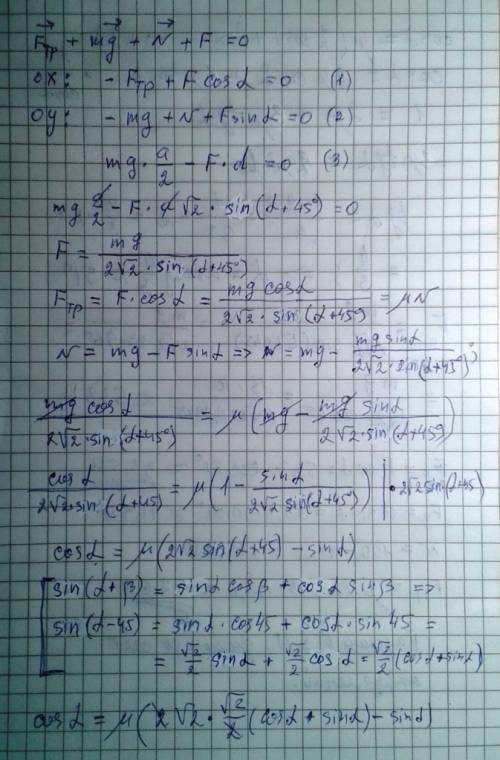 F⃗тр + mg⃗ + N⃗ + F = 0
ox: - Fтр + F cosα = 0 (1)
oy: - mg + N + F sinα = 0 (2)
mg · a/2 - F · d = 0 (3)
mg a/2 - F · a √2 · sin(α+45°) = 0
F = mg / (2√2 · sin(α+45°))
Fтр = F · cosα = mg cosα / (2√2 · sin(α+45°)) = μN
N = mg - F sinα => N = mg - mg sinα / (2√2 · sin(α+45°));
mg cosα / (2√2 · sin(α+45°)) = μ(mg - mg sinα / (2√2 · sin(α+45°)))
cosα / (2√2 · sin(α+45)) = μ(1 - sinα / (2√2 sin(α+45))) | · 2√2 sin(α+45)
cosα = μ(2√2 sin(α+45) - sinα)
[sin(α+β) = sinα cosβ + cosα sinβ =>
sin(α-45) = sinα · cos45 + cosα · sin45 =
= √2/2 sinα + √2/2 cosα = √2/2 (cosα + sinα)
cosα = μ(2√2 · √2/2 (cosα + sinα) - sinα)